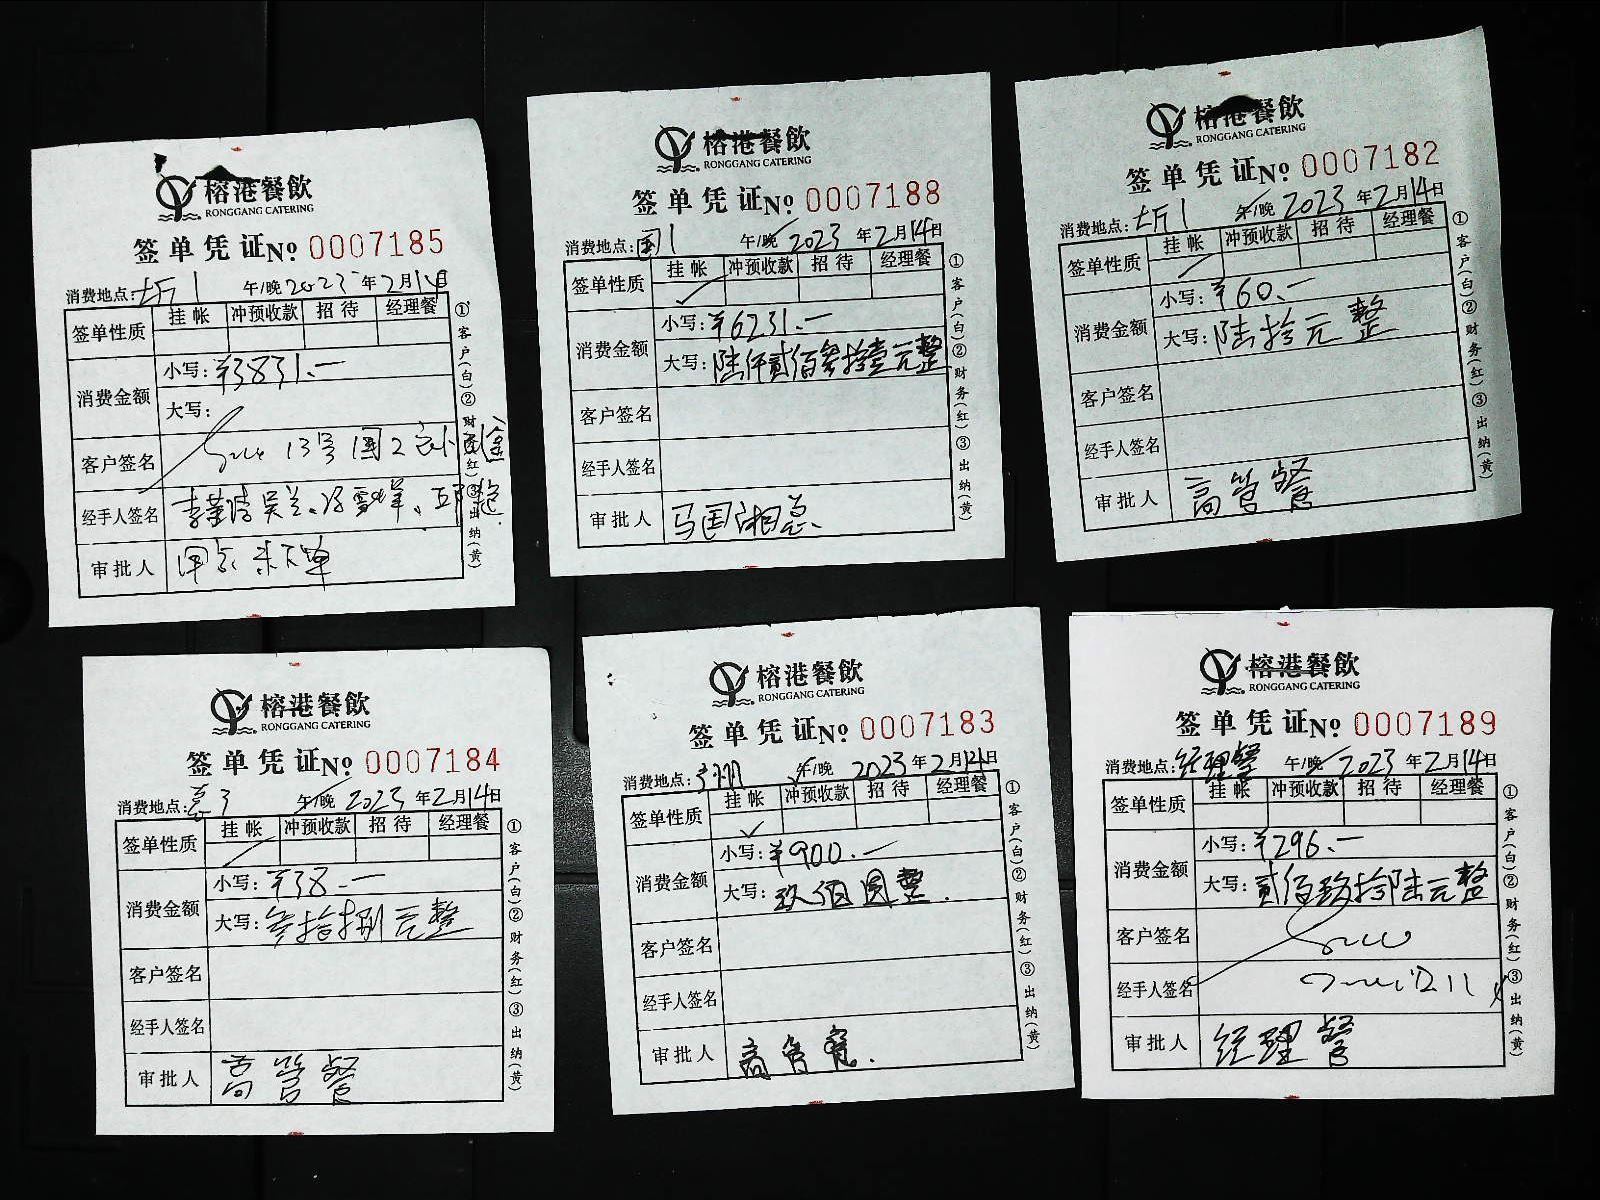 榕港餐飲
RONGGANG CATERING
签单凭证 No 0007185
消费地点: 午/晚 2023年2月14日
签单性质 挂帐 冲预收款 招待 经理餐
消费金额
小写: ¥3831.一
大写:
客户签名 13号 国2
经手人签名
审批人
①客户(白)②财务(红)③出纳(黄)
榕港餐飲
RONGGANG CATERING
签单凭证 No 0007188
消费地点: 国1 午/晚 2023年2月14日
签单性质 挂帐 冲预收款 招待 经理餐
✓
消费金额
小写: ¥6231.一
大写: 陆仟贰佰叁拾壹元整
客户签名
经手人签名
审批人 马国湘总
①客户(白)②财务(红)③出纳(黄)
榕港餐飲
RONGGANG CATERING
签单凭证 No 0007182
消费地点: 午/晚 2023年2月14日
签单性质 挂帐 冲预收款 招待 经理餐
消费金额
小写: ¥60.一
大写: 陆拾元整
客户签名
经手人签名
审批人 高管餐
①客户(白)②财务(红)③出纳(黄)
榕港餐飲
RONGGANG CATERING
签单凭证 No 0007184
消费地点: 午/晚 2023年2月14日
签单性质 挂帐 冲预收款 招待 经理餐
消费金额
小写: ¥38.一
大写: 叁拾捌元整
客户签名
经手人签名
审批人 高管餐
①客户(白)②财务(红)③出纳(黄)
榕港餐飲
RONGGANG CATERING
签单凭证 No 0007183
消费地点: 午/晚 2023年2月14日
签单性质 挂帐 冲预收款 招待 经理餐
✓
消费金额
小写: ¥900.一
大写: 玖佰圆整.
客户签名
经手人签名
审批人 高管餐.
①客户(白)②财务(红)③出纳(黄)
榕港餐飲
RONGGANG CATERING
签单凭证 No 0007189
消费地点: 经理餐 午/晚 2023年2月14日
签单性质 挂帐 冲预收款 招待 经理餐
消费金额
小写: ¥296.一
大写: 贰佰玖拾陆元整
客户签名
经手人签名
审批人 经理餐
①客户(白)②财务(红)③出纳(黄)